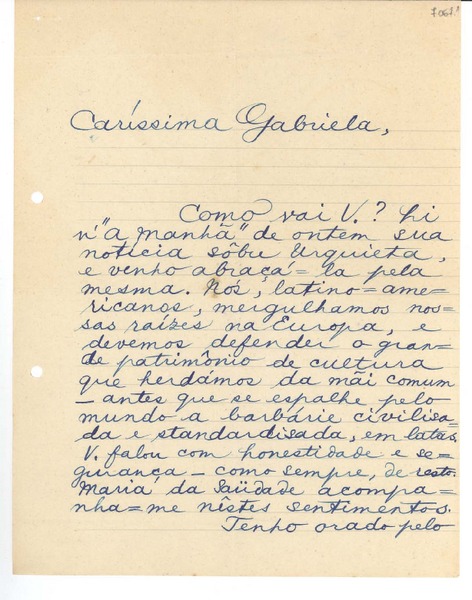 7067.1
Caríssima Gabriela,
Como vai V.? Li
n'"A Manhã" de ontem sua
notícia sôbre Urquieta,
e venho abraçá=la pela
mesma. Nós, latino=ame=
ricanos, mergulhamos nos=
sas raízes na Europa, e
devemos defender o gran=
de patrimônio de cultura
que herdámos da mãi comum
— antes que se espalhe pelo
mundo a barbárie civilisa=
da e standardisada, em latas.
V. falou com honestidade e se=
gurança — como sempre, de resto.
Maria da Saüdade acompa=
nha=me nêstes sentimentos.
Tenho orado pelo